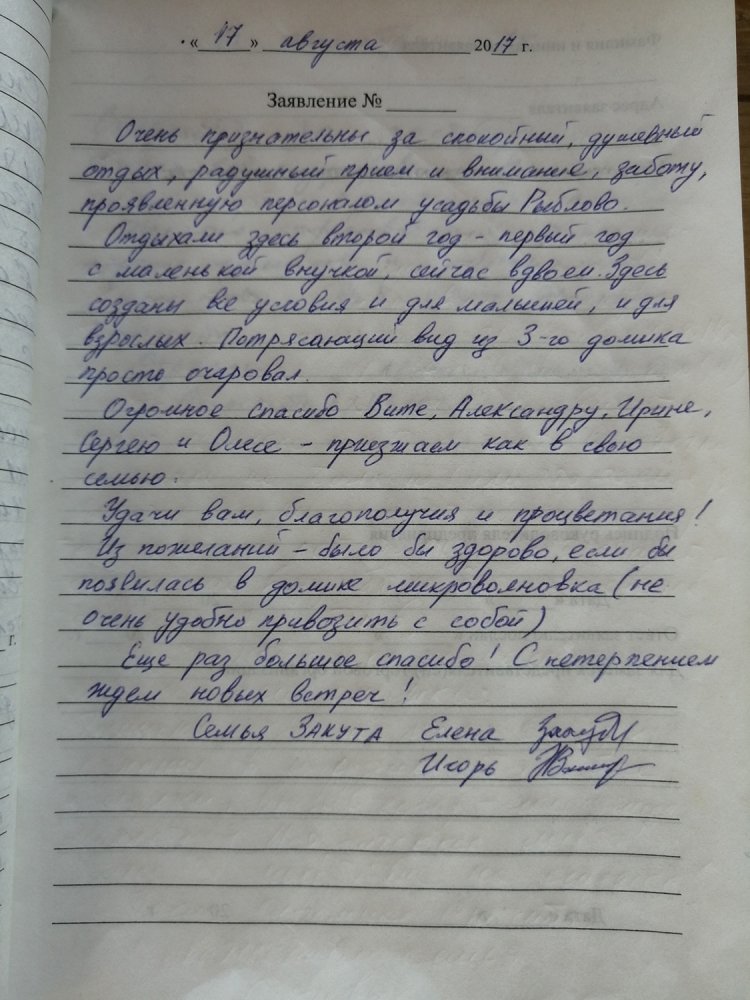 «17» августа 2017 г.
Заявление № ______
Очень признательны за спокойный, душевный
отдых, радушный прием и внимание, заботу,
проявленную персоналом усадьбы Рыблово.
Отдыхали здесь второй год - первый год
с маленькой внучкой, сейчас вдвоем. Здесь
созданы все условия и для малышей, и для
взрослых. Потрясающий вид из 3-го домика
просто очаровал.
Огромное спасибо Вите, Александру, Ирине,
Сергею и Олесе - приезжаем как в свою
семью.
Удачи вам, благополучия и процветания!
Из пожеланий - было бы здорово, если бы
появилась в домике микроволновка (не
очень удобно привозить с собой)
Еще раз большое спасибо! С нетерпением
ждем новых встреч!
Семья ЗАКУТА Елена
Игорь
г.